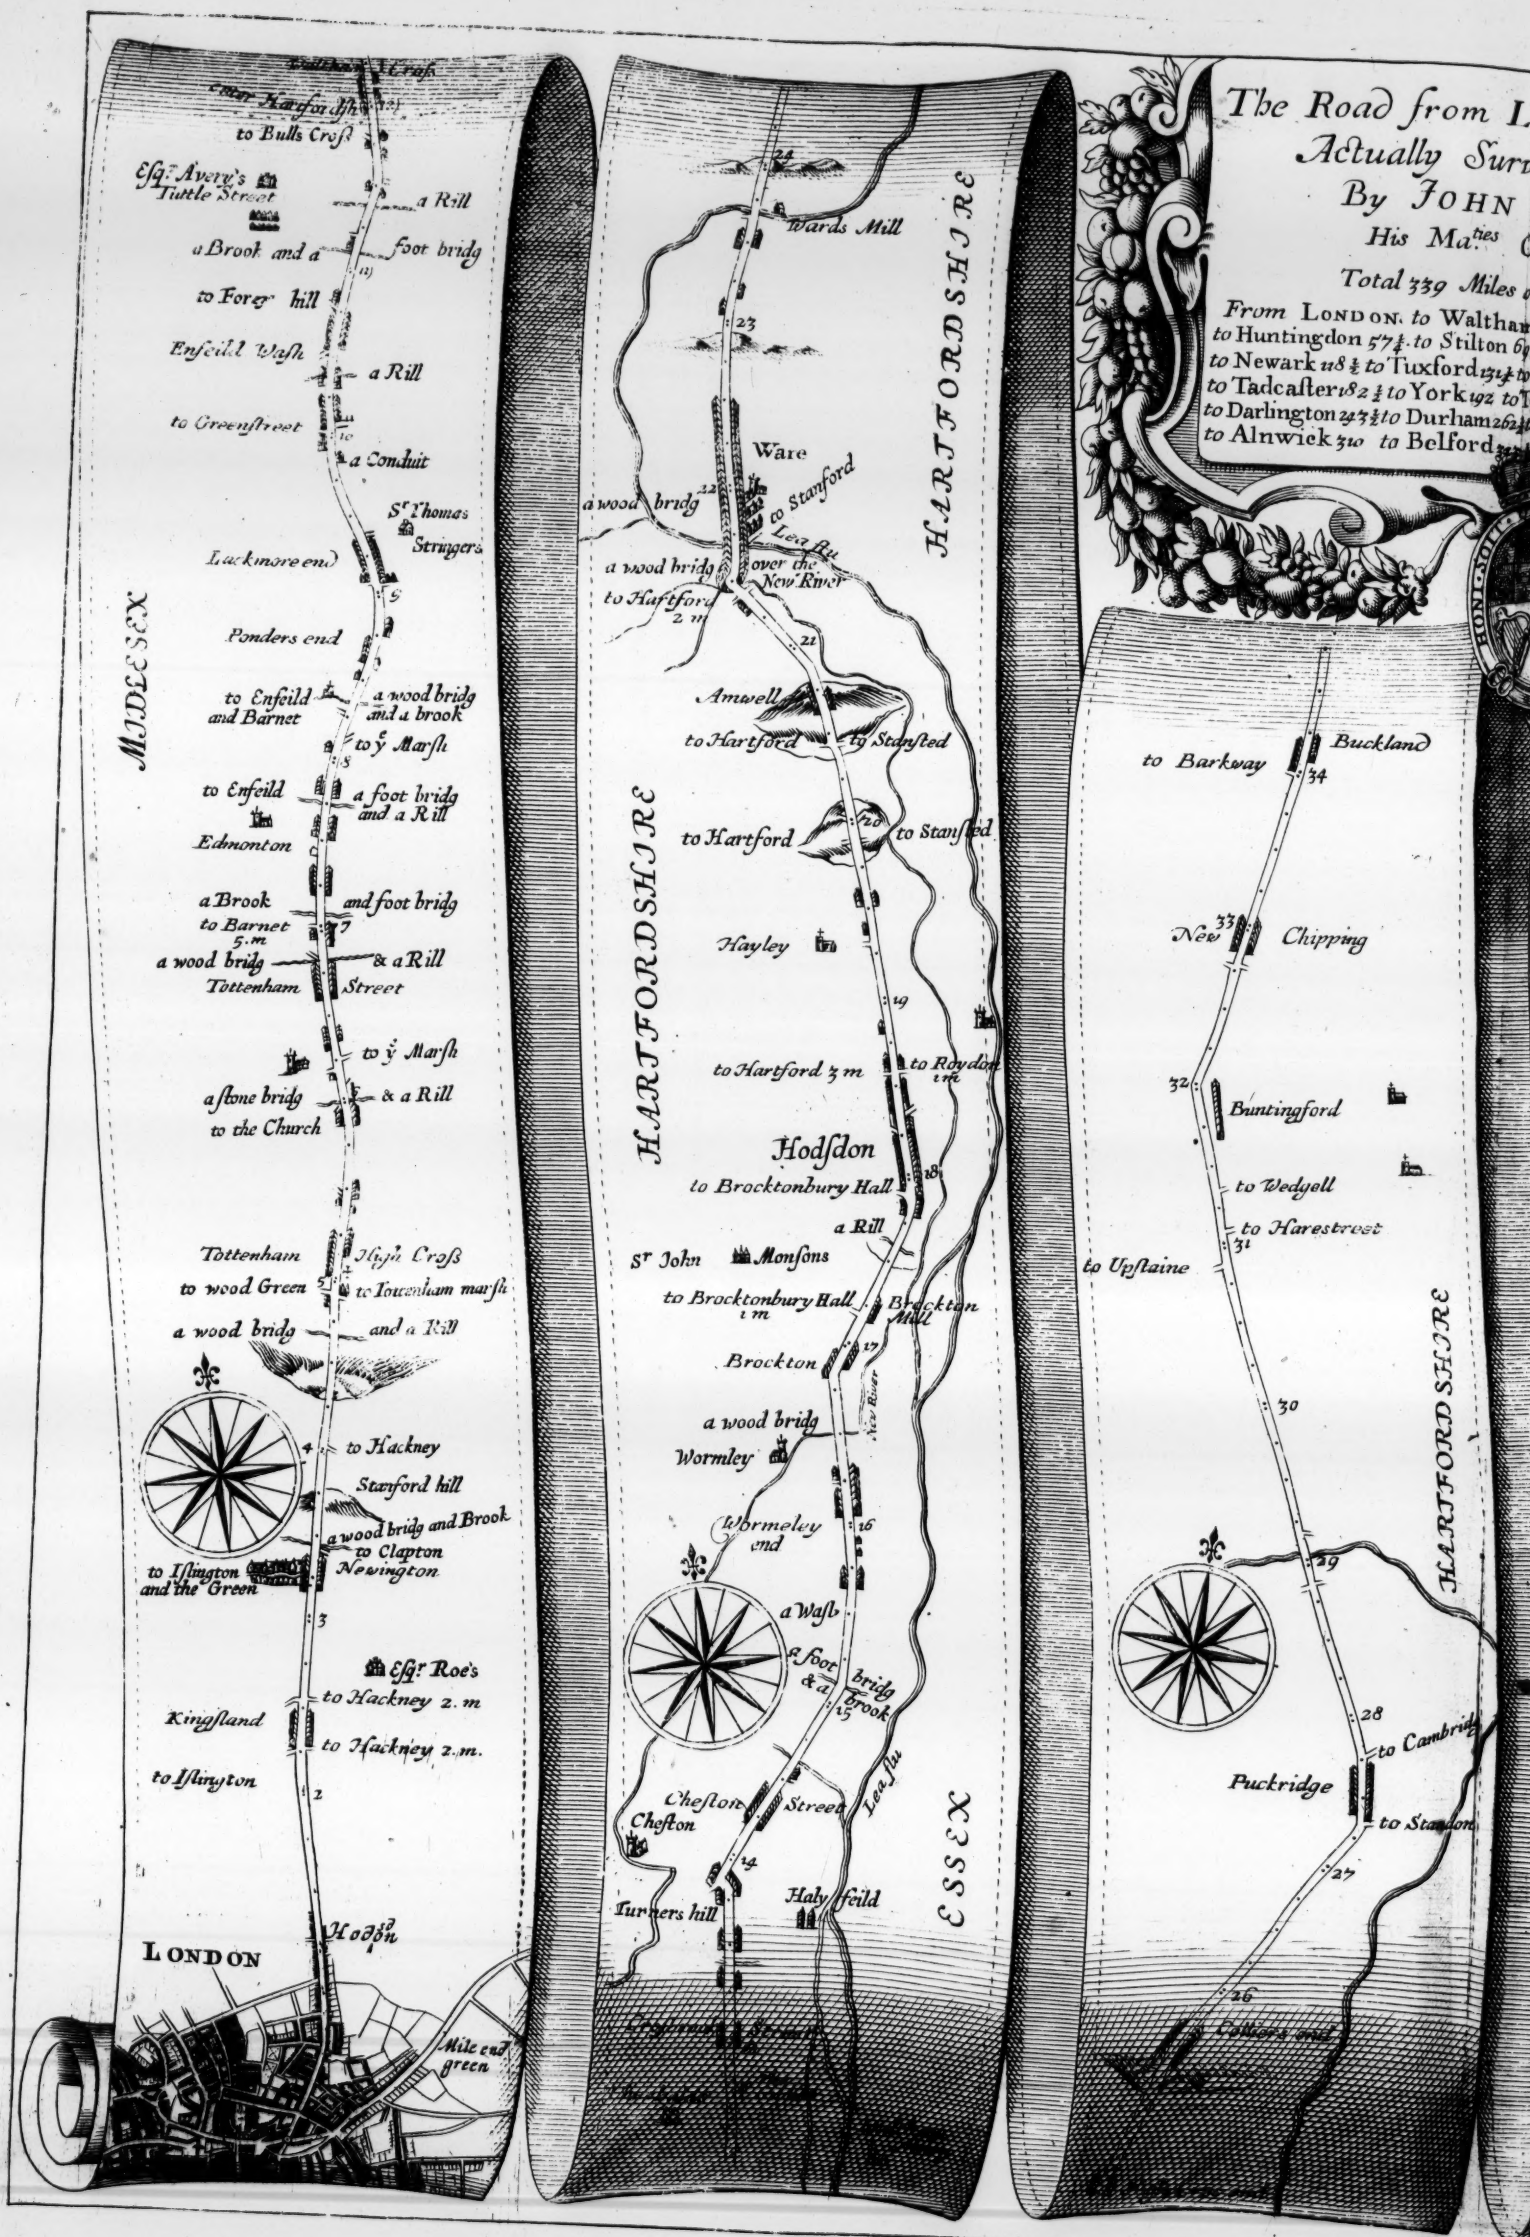 The Road from L
Actually Surv
By JOHN
His Ma.ties
Total 339 Miles
From LONDON. to Waltham
to Huntingdon 57¼. to Stilton 69
to Newark 118½ to Tuxford 131½ to
to Tadcaſter 182½ to York 192 to T
to Darlington 243½ to Durham 262½
to Alnwick 310 to Belford
HONI · SOIT
Croſs
enter Hartfordsh
to Bulls Croſs
Eſqr. Avery's
Tuttle Street
a Rill
a Brook and a foot bridg
to Forty hill
Enfeild Waſh
a Rill
to Greenſtreet
10
a Conduit
Sr. Thomas
Stringers
Lackmore end
9
Ponders end
MIDLESEX
to Enfeild
and Barnet
a wood bridg
and a brook
to ye Marſh
8
to Enfeild
a foot bridg
and a Rill
Edmonton
a Brook and foot bridg
to Barnet
5.m
7
a wood bridg & a Rill
Tottenham Street
to ye Marſh
a ſtone bridg & a Rill
to the Church
Tottenham High Croſs
to wood Green
5
to Tottenham marſh
a wood bridg and a Rill
4
to Hackney
Stanford hill
a wood bridg and Brook
to Clapton
to Iſlington
and the Green
Newington
3
Eſqr Roe's
to Hackney 2.m
Kingſland
to Hackney 2.m.
to Iſlington
2
Hodſdn
LONDON
Mile end
green
24
Wards Mill
HARTFORDSHIRE
23
Ware
22
a wood bridg
to Stanford
Lea flu
a wood bridg over the
New River
to Hartford
2 m
21
Amwell
to Hartford to Stanſted
20
to Hartford to Stanſted
HARTFORDSHIRE
Hayley
19
to Hartford 3 m to Roydon
1 m
Hodſdon
18
to Brocktonbury Hall
a Rill
Sr John Monſons
to Brocktonbury Hall
1 m
Brockton
Mill
17
Brockton
New River
a wood bridg
Wormley
Wormeley
end
16
a Waſh
a foot bridg
& a brook
15
Lea flu
Cheſton Street
Cheſton
14
Turners hill
Haly feild
ESSEX
Street
Buckland
to Barkway
34
33
New Chipping
32
Buntingford
to Wedgell
to Harestreet
31
to Upſtaine
30
HARTFORDSHIRE
29
28
to Cambridg
Puckridge
to Standon
27
26
Colliers end